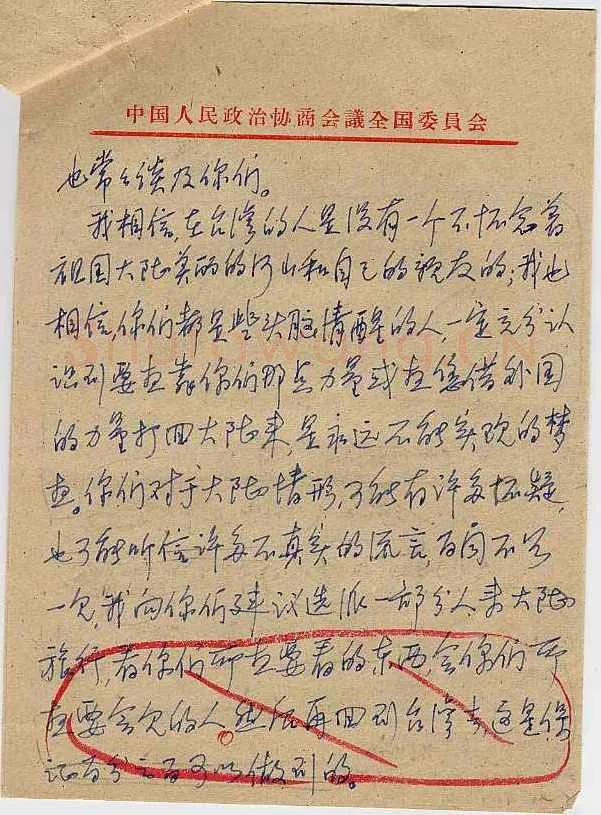 中国人民政治协商会議全国委員会
也常常谈及你们。
我相信,在台湾的人是没有一个不怀念着
祖国大陆美丽的河山和自己的亲友的;我也
相信,你们都是些头脑清醒的人,一定充分认
识到要想靠你们那点力量或想凭借外国
的力量打回大陆来,是永远不能实现的梦
想。你们对于大陆情形,可能有许多怀疑,
也可能听信许多不真实的流言,百闻不如
一见,我向你们建议选派一部分人来大陆
旅行,看你们所想要看的东西,会你们所
想要会见的人。然后再回到台湾去,这是保
证百分之百可以做到的。